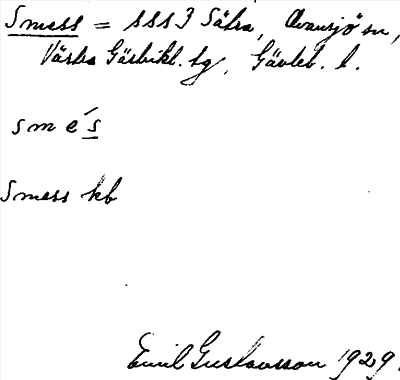 Smess = SSS3 Sätra, Ovansjö sn,
Västra Gästrikl. tg, Gävleb. l.
smés
Smess kb
Emil Gustavsson 1929.